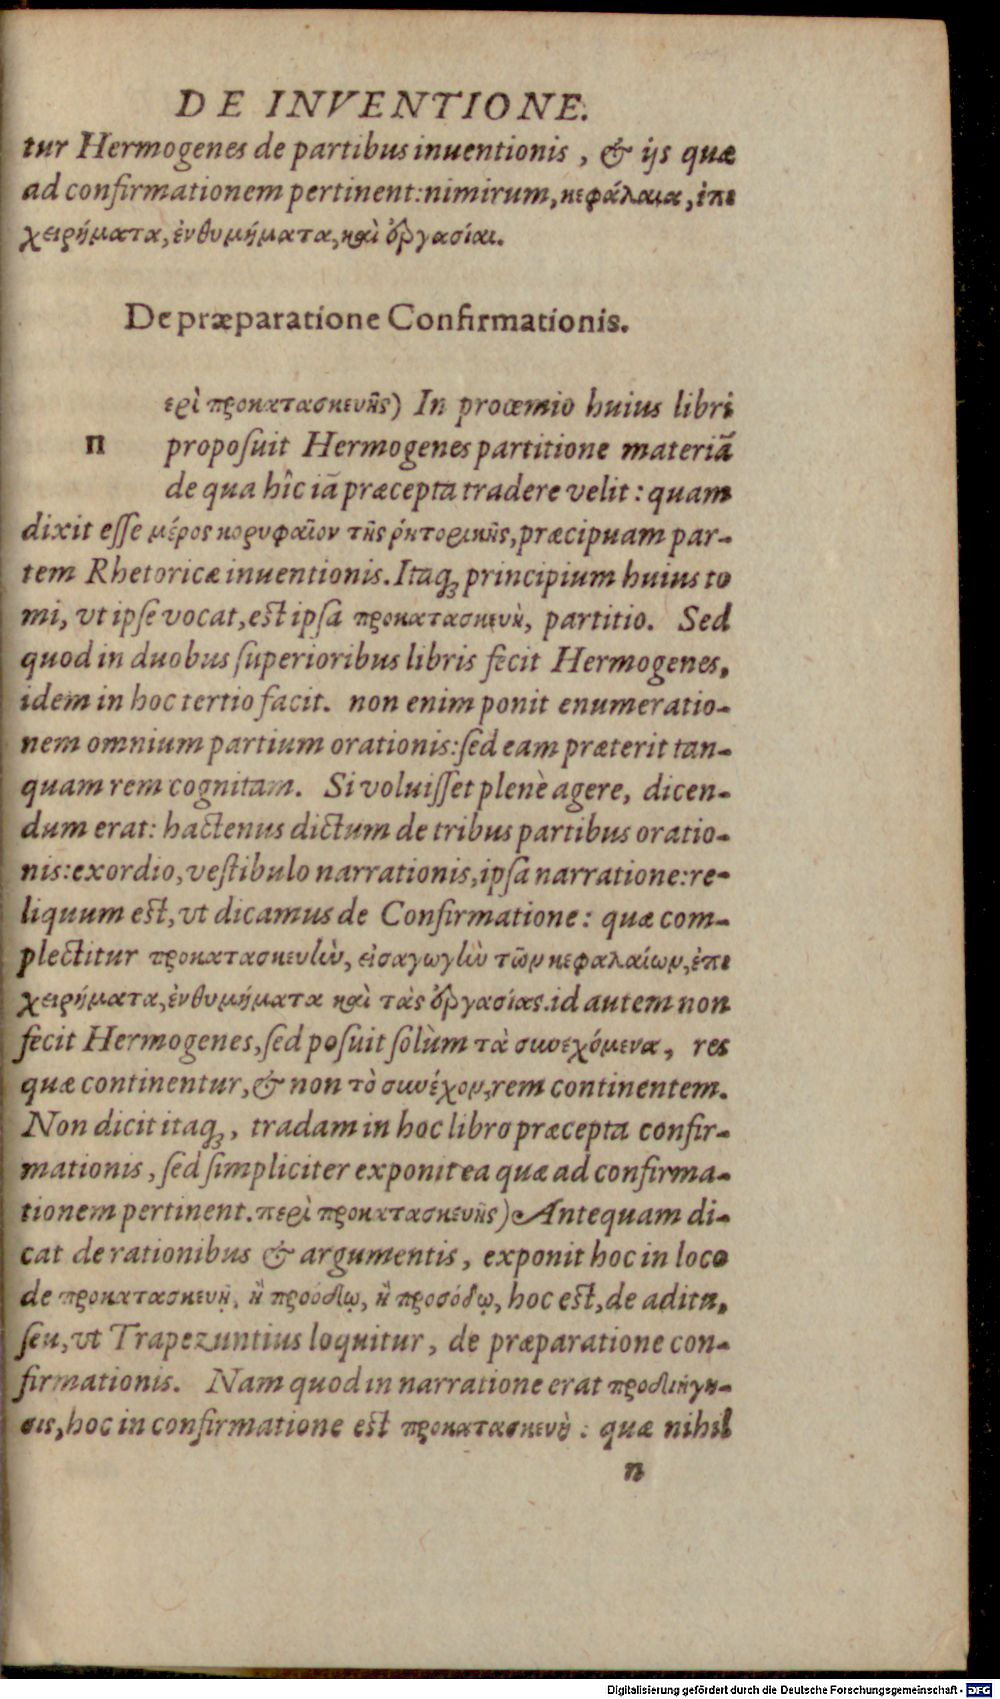 DE INVENTIONE.
tur Hermogenes de partibus inuentionis, & ijs quæ
ad confirmationem pertinent: nimirum, κεφάλαια, ἐπι
χειρήματα, ἐνθυμήματα, καὶ ἐργασίαι.
De præparatione Confirmationis.
ερὶ προκατασκευῆς) In proœmio huius libri
Π proposuit Hermogenes partitione materiã
de qua hîc iã præcepta tradere velit: quam
dixit esse μέρος κορυφαῖον τῆς ῥητορικῆς, præcipuam par-
tem Rhetoricæ inuentionis. Itaq; principium huius to
mi, vt ipse vocat, est ipsa προκατασκευὴ, partitio. Sed
quod in duobus superioribus libris fecit Hermogenes,
idem in hoc tertio facit. non enim ponit enumeratio-
nem omnium partium orationis: sed eam præterit tan-
quam rem cognitam. Si voluisset plenè agere, dicen-
dum erat: hactenus dictum de tribus partibus oratio-
nis: exordio, vestibulo narrationis, ipsa narratione: re-
liquum est, vt dicamus de Confirmatione: quæ com-
plectitur προκατασκευὴν, εἰσαγωγὴν τῶν κεφαλαίων, ἐπι
χειρήματα, ἐνθυμήματα καὶ τὰς ἐργασίας. id autem non
fecit Hermogenes, sed posuit solùm τὰ συνεχόμενα, res
quæ continentur, & non τὸ συνέχον, rem continentem.
Non dicit itaq;, tradam in hoc libro præcepta confir-
mationis, sed simpliciter exponit ea quæ ad confirma-
tionem pertinent. περὶ προκατασκευῆς) Antequam di-
cat de rationibus & argumentis, exponit hoc in loco
de προκατασκευῇ, ἢ προόδῳ, ἢ προσόδῳ, hoc est, de aditu,
seu, vt Trapezuntius loquitur, de præparatione con-
firmationis. Nam quod in narratione erat προδιήγη-
σις, hoc in confirmatione est προκατασκευὴ: quæ nihil
n
Digitalisierung gefördert durch die Deutsche Forschungsgemeinschaft - DFG